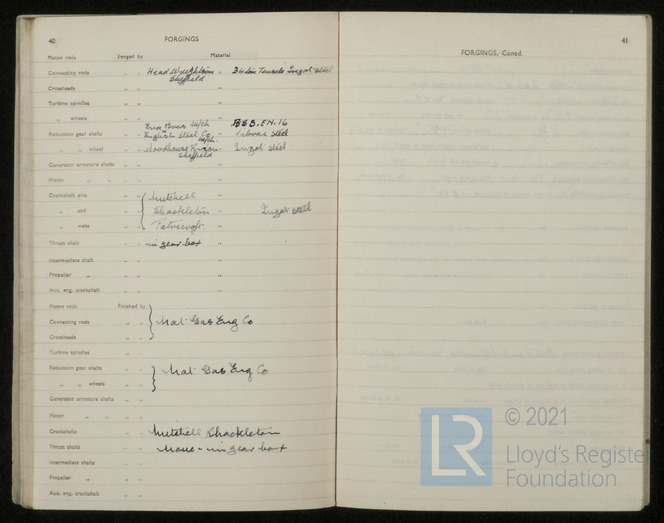 40
FORGINGS
Piston rods Forged by Material
Connecting rods " " Head Wrightson " 34 ton Tensile Ingot steel
Sheffield
Crossheads " " "
Turbine spindles " " "
" wheels " " "
Eng Bros B.S.S. EN. 16
Reduction gear shafts " " English Steel Co " steel
" " wheel " " Woodhouse Rixon " Ingot steel
Sheffield
Generator armature shafts " " "
Motor " " " " "
Crankshaft pins " " Mitchell "
" and " " Shackleton " Ingot steel
" webs " " Patricroft "
Thrust shaft " " in gear box "
Intermediate shaft " " "
Propeller " " " "
Aux. eng. crankshaft " " "
Piston rods Finished by
Connecting rods " " Nat Gas Eng Co
Crossheads " "
Turbine spindles " "
Reduction gear shafts " " Nat Gas Eng Co
" " wheels " "
Generator armature shafts " "
Motor " " " "
Crankshafts " " Mitchell Shackleton
Thrust shafts " " None - in gear box
Intermediate shafts " "
Propeller " " "
Aux. eng. crankshaft " "
41
FORGINGS, Contd.
LR
© 2021
Lloyd's Register
Foundation